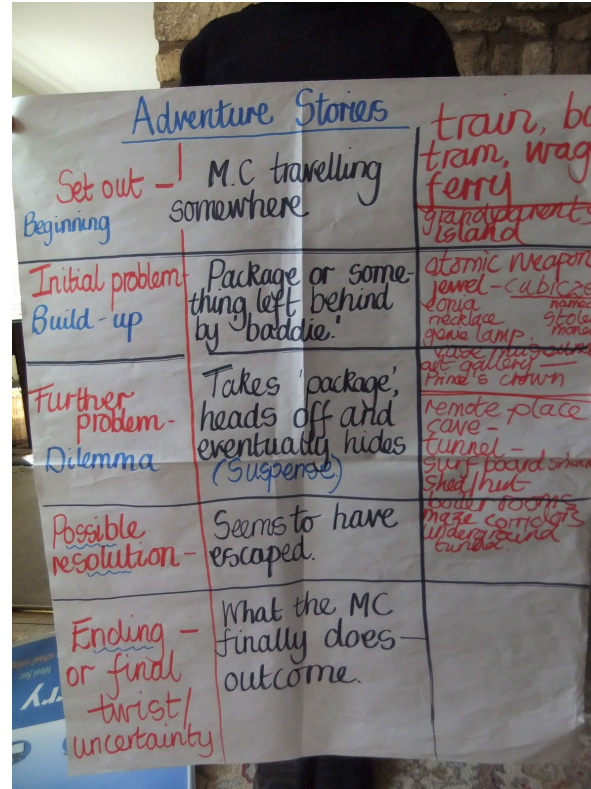 Adventure Stories
Set out -
Beginning
M.C travelling
somewhere
train, bu
tram, wag
ferry
grandparents
island
Initial problem
Build-up
Package or some-
thing left behind
by 'baddie.'
atomic weapon
jewel - cubicze
named
necklace
stole
mone
genie lamp.
art gallery —
crown
Further
problem -
Dilemma
Takes 'package',
heads off and
eventually hides
(Suspense)
remote place
cave -
tunnel -
surf board
shed/hut
boiler rooms
maze
underground
tunnel.
Possible
resolution -
Seems to have
escaped.
Ending -
or final
twist/
uncertainty
What the MC
finally does -
outcome.